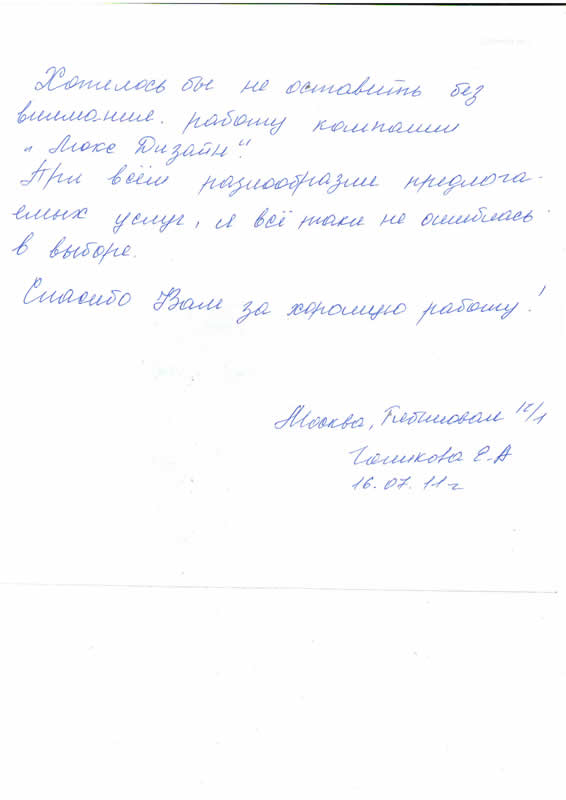 Хотелось бы не оставить без
внимания. работу компании
"Люкс Дизайн".
При всём разнообразии предлога-
емых услуг, я всё таки не ошиблась
в выборе.
Спасибо Вам за хорошую работу!
Москва, 12/1
Е.А
16.07.11г